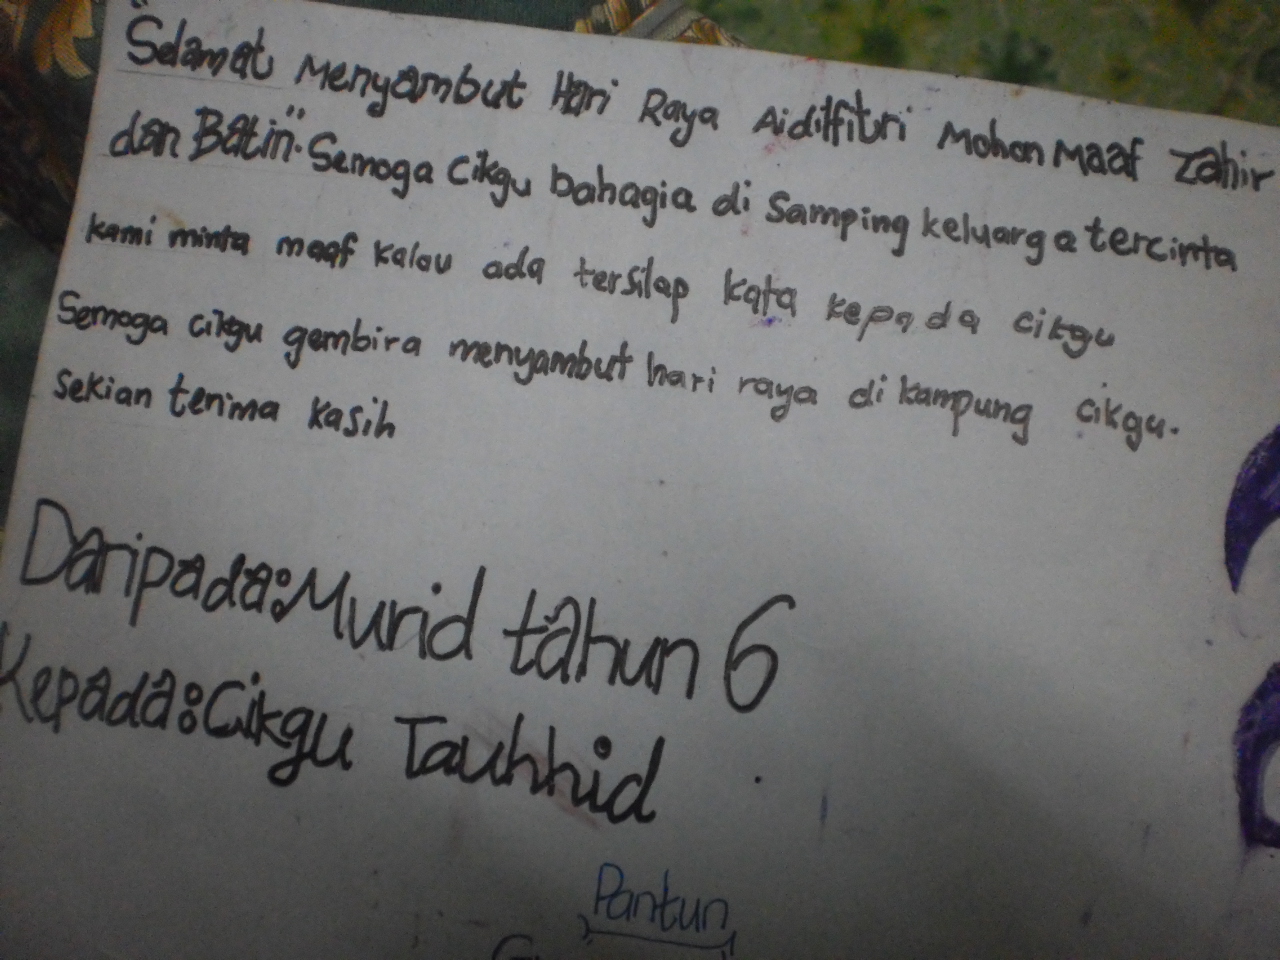 "Selamat Menyambut Hari Raya Aidilfitri Mohon Maaf Zahir
dan Batin". Semoga Cikgu bahagia di samping keluarga tercinta
kami minta maaf kalau ada tersilap kata kepada cikgu
Semoga cikgu gembira menyambut hari raya di kampung cikgu.
Sekian terima kasih
Daripada:Murid tahun 6
Kepada:Cikgu Tauhhid
Pantun